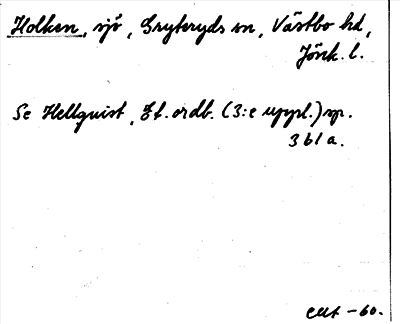 Holken, sjö, Gryteryds sn, Västbo hd,
Jönk. l.
Se Hellquist, Et. ordb. (3:e uppl.) sp.
361 a.
-60.